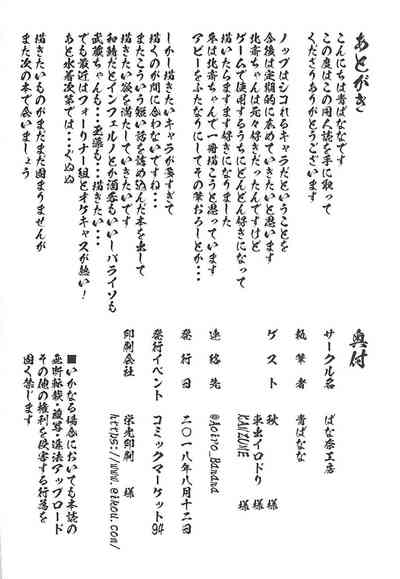 あとがき
こんにちは青ばななです
この度はこの同人誌を手に取って
くださりありがとうございます
ノッブはシコれるキャラだということを
今後は定期的に広めていきたいと思います
北斎ちゃんは元々好きだったんですけど
ゲームで使用するうちにどんどん好きになって
描いたらますます好きになりました
冬は北斎ちゃんで一冊描こうと思っています
アビーをふたなりにしてその筆おろしとか・・・
しかし描きたいキャラが多すぎて
描くのが間に合ないですね・・・
またこういう短い話を詰め込んだ本を出して
描きたい欲を満たしていきたいです
和鯖だとインフェルノとか酒呑もいいしパライソも
武蔵ちゃんも・・玉藻も・・描きたい・・・
でも最近はフォーリナー組とオケキャスが熱い!
あと水着次第では・・・くぬぬ
描きたいものがまだまだ固まりませんが
また次の本で会いましょう
奥付
サークル名 ばな奈工店
執筆者 青ばなな
ゲスト 秋 様
東虫イロドリ 様
KANZUME 様
連絡先 @Aokyo_Banana
発行日 二〇一八年八月十二日
発行イベント コミックマーケット94
印刷会社 栄光印刷 様
https://www.eikou.com/
■いかなる場合においても本誌の
無断転載・複写・違法アップロード
その他の権利を侵害する行為を
固く禁じます